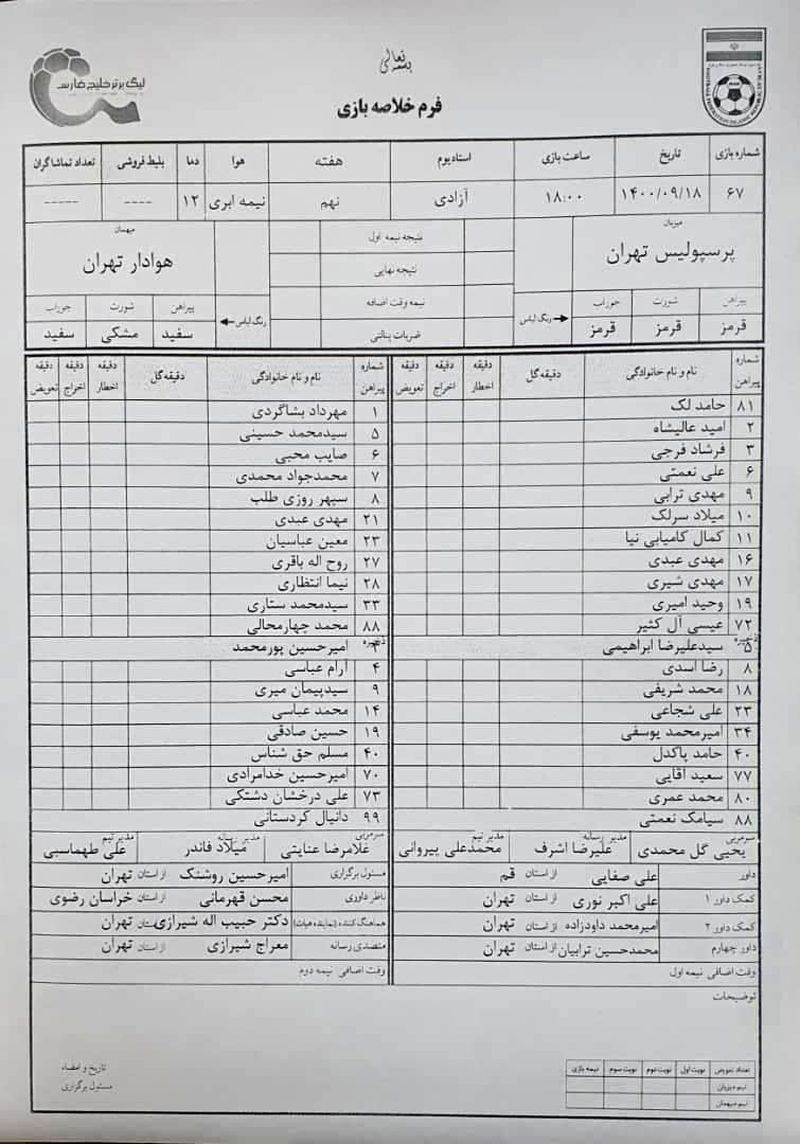 بسمه تعالی
لیگ برتر خلیج فارس
فرم خلاصه بازی
شماره بازی تاریخ ساعت بازی استادیوم هفته هوا دما بلیط فروشی تعداد تماشاگران
۶۷ ۱۴۰۰/۰۹/۱۸ ۱۸:۰۰ آزادی نهم نیمه ابری ۱۲ ---- -----
میزبان نتیجه نیمه اول میهمان
پرسپولیس تهران نتیجه نهایی هوادار تهران
پیراهن شورت جوراب نیمه وقت اضافه پیراهن شورت جوراب
قرمز قرمز قرمز رنگ لباس ضربات پنالتی رنگ لباس سفید مشکی سفید
شماره پیراهن نام و نام خانوادگی دقیقه گل دقیقه اخطار دقیقه اخراج دقیقه تعویض شماره پیراهن نام و نام خانوادگی دقیقه گل دقیقه اخطار دقیقه اخراج دقیقه تعویض
۸۱ حامد لک ۱ مهرداد بشاگردی
۲ امید عالیشاه ۵ سیدمحمد حسینی
۳ فرشاد فرجی ۶ صایب محبی
۶ علی نعمتی ۷ محمدجواد محمدی
۹ مهدی ترابی ۸ سپهر روزی طلب
۱۰ میلاد سرلک ۲۱ مهدی عبدی
۱۱ کمال کامیابی نیا ۲۳ معین عباسیان
۱۶ مهدی عبدی ۲۷ روح اله باقری
۱۷ مهدی شیری ۲۸ نیما انتظاری
۱۹ وحید امیری ۳۳ سیدمحمد ستاری
۷۲ عیسی آل کثیر ۸۸ محمد چهارمحالی
ذخیره ۵ سیدعلیرضا ابراهیمی ذخیره امیرحسین پورمحمد
۸ رضا اسدی ۴ آرام عباسی
۱۸ محمد شریفی ۹ سیدپیمان میری
۲۳ علی شجاعی ۱۴ محمد عباسی
۳۴ امیرمحمد یوسفی ۱۹ حسین صادقی
۴۰ حامد پاکدل ۴۰ مسلم حق شناس
۷۷ سعید آقایی ۷۰ امیرحسین خدامرادی
۸۰ محمد عمری ۷۳ علی درخشان دشتکی
۸۸ سیامک نعمتی ۹۹ دانیال کردستانی
سرمربی یحیی گل محمدی مدیر رسانه علیرضا اشرف مدیر تیم محمدعلی پیروانی سرمربی غلامرضا عنایتی مدیر رسانه میلاد فاندر مدیر تیم علی طهماسبی
داور علی صفایی از استان قم مسئول برگزاری امیرحسین روشنک از استان تهران
کمک داور ۱ علی اکبر نوری از استان تهران ناظر داوری محسن قهرمانی از استان خراسان رضوی
کمک داور ۲ امیرمحمد داودزاده از استان تهران هماهنگ کننده (نماینده هیات) دکتر حبیب اله شیرازی از استان تهران
داور چهارم محمدحسین ترابیان از استان تهران متصدی رسانه معراج شیرازی از استان تهران
وقت اضافی نیمه اول وقت اضافی نیمه دوم
توضیحات
تعداد تعویض نوبت اول نوبت دوم نوبت سوم نیمه بازی
تیم میزبان
تیم میهمان
تاریخ و امضاء
مسئول برگزاری